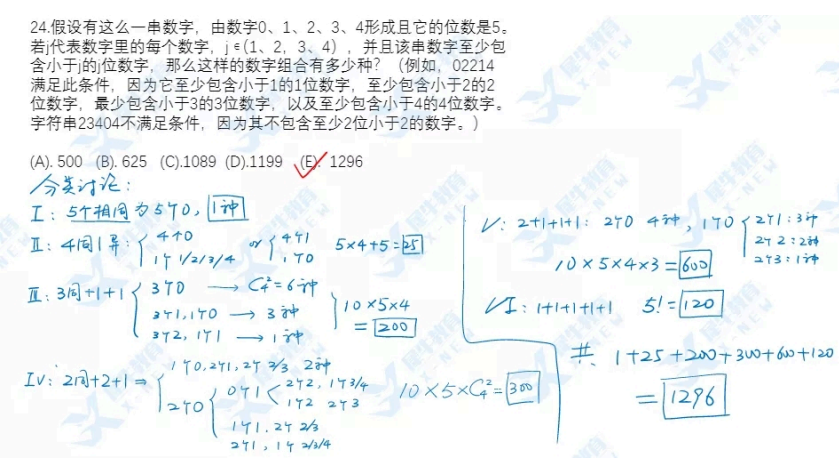 24.假设有这么一串数字，由数字0、1、2、3、4形成且它的位数是5。
若j代表数字里的每个数字，j∈(1、2，3、4），并且该串数字至少包
含小于j的j位数字，那么这样的数字组合有多少种？（例如，02214
满足此条件，因为它至少包含小于1的1位数字，至少包含小于2的2
位数字，最少包含小于3的3位数字，以及至少包含小于4的4位数字。
字符串23404不满足条件，因为其不包含至少2位小于2的数字。）
(A). 500 (B). 625 (C).1089 (D).1199 (E). 1296
分类讨论：
I：5个相同为5个0，1种
II：4同1异：{4个0 1个1/2/3/4 or {4个1 1个0 5×4+5=25
III：3同+1+1 {3个0 → C₄²=6种
3个1,1个0 → 3种
3个2, 1个1 → 1种
10×5×4
=200
IV：2同+2+1 ⇒ {1个0,2个1,2个2/3 2种
2个0 {0个1 <2个2, 1个3/4
1个2 2个3
1个1, 2个2/3
2个1, 1个2/3/4
10×5×C₄²=300
V：2+1+1+1：2个0 4种，1个0 {2个1：3种
2个2：2种
2个3：1种
10×5×4×3=600
VI：1+1+1+1+1 5!=120
共 1+25+200+300+600+120
=1296